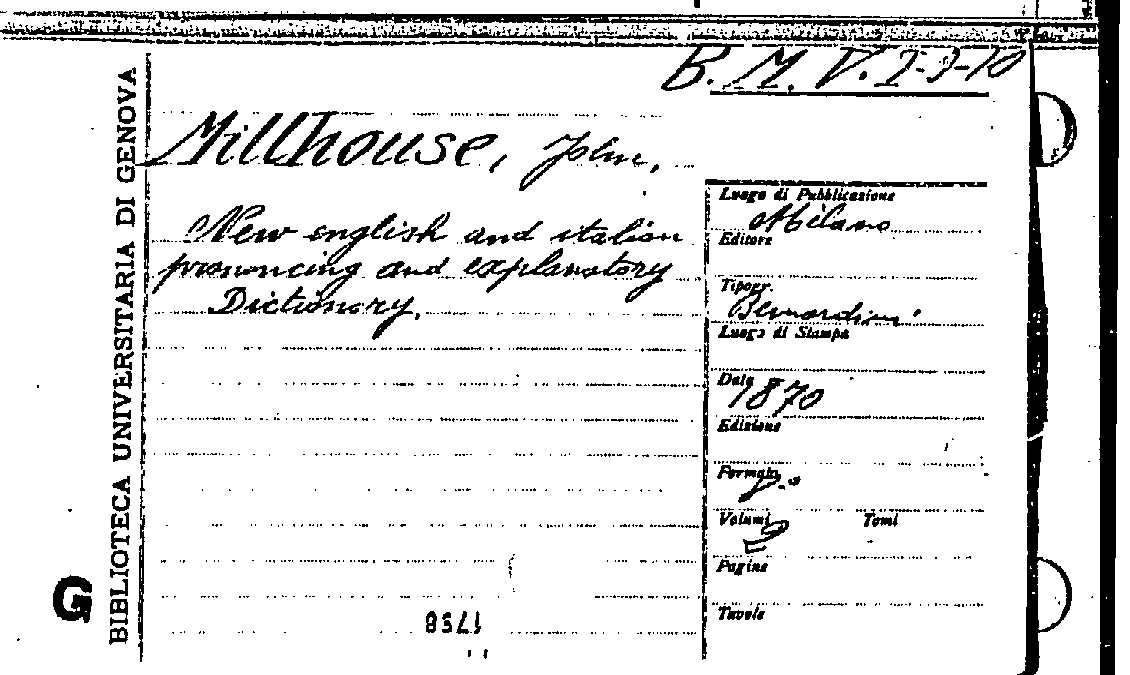 B. M. V. I-9-10
Millhouse, John,
New english and italian
pronouncing and explanatory
Dictionary.
BIBLIOTECA UNIVERSITARIA DI GENOVA
G
Luogo di Pubblicazione
Milano
Editore
Tipogr.
Bernardoni
Luogo di Stampa
Data
1870
Edizione
Formato
Volumi Tomi
Pagine
Tavole
1798